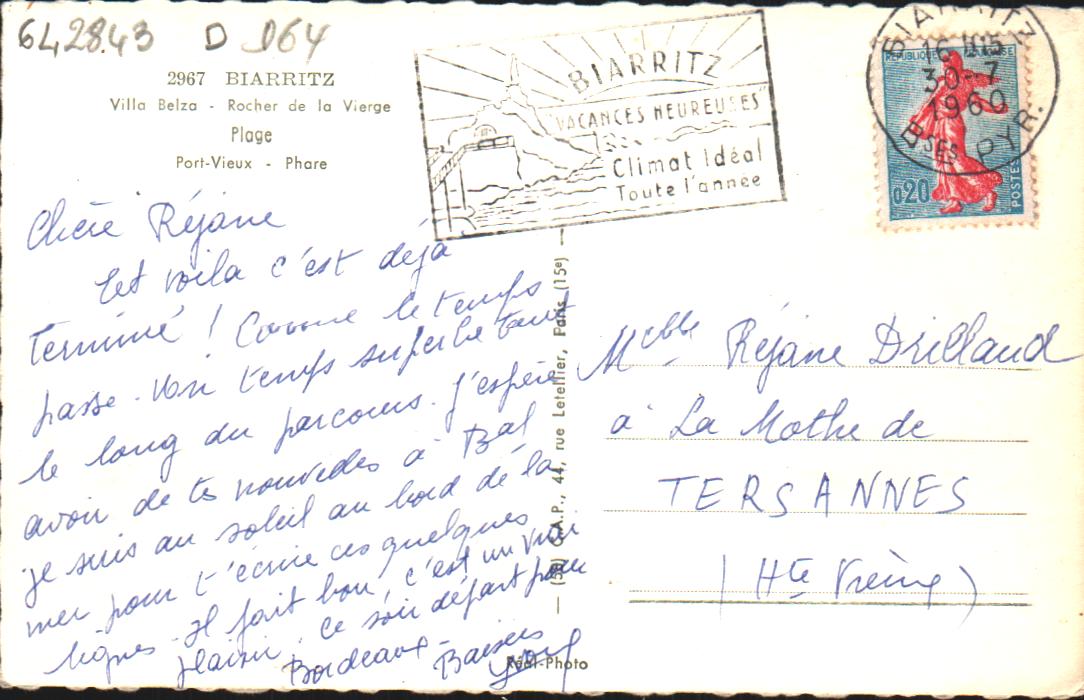 642843 D 064
2967 BIARRITZ
Villa Belza - Rocher de la Vierge
Plage
Port-Vieux - Phare
BIARRITZ
"VACANCES HEUREUSES"
Climat Idéal
Toute l'année
BIARRITZ
16 H 15
30-7
1960
BSES PYR.
REPUBLIQUE FRANÇAISE
0,20
POSTES
Chère Réjane
Et voila c'est déjà
terminé ! Comme le temps
passe. Un temps superbe tout
le long du parcours. J'espère
avoir de tes nouvelles à Bal
je suis au soleil au bord de la
mer pour t'écrire ces quelques
lignes. Il fait bon, c'est un vrai
plaisir. Ce soir départ pour
Bordeaux - Baisers
(59) C.A.P., 44, rue Letellier, Paris (15e)
Réal-Photo
Melle Réjane Drillaud
à La Mothe de
TERSANNES
(Hte Vienne)